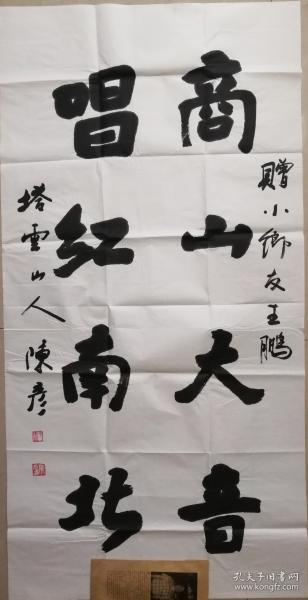 贈小鄉友王鵬
商山大音
唱紅南北
塔雲山人陳彥
孔夫子旧书网
www.kongfz.com